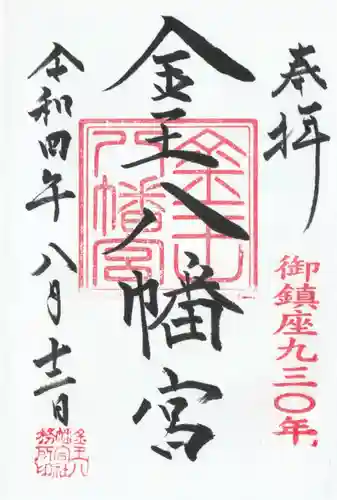 奉拝
御鎮座九三〇年
金王八幡宮
金王八幡宮
令和四年八月十二日
金王八幡宮社務所印